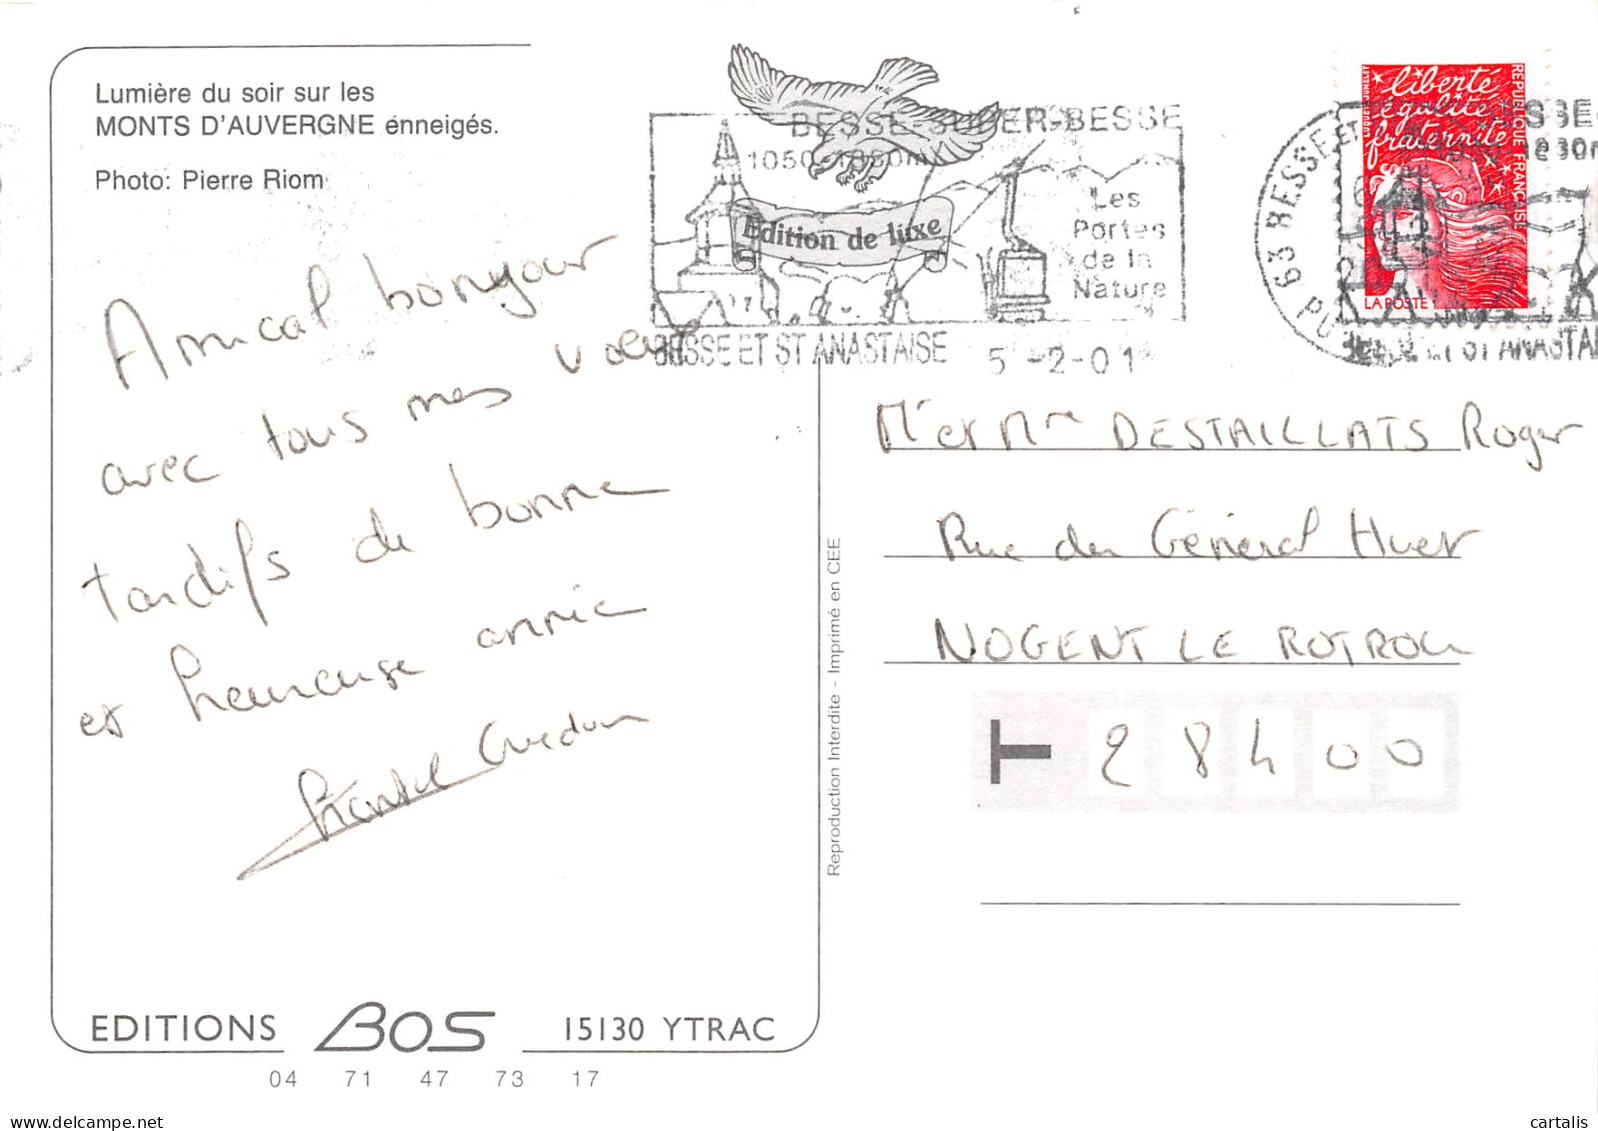 Lumière du soir sur les
MONTS D'AUVERGNE enneigés.
Photo: Pierre Riom
Amical bonjour
avec tous mes vœux
tardifs de bonne
et heureuse année
Chantal
BESSE-SUPER-BESSE
1050-1850m
Edition de luxe
Les
Portes
de la
Nature
BESSE ET ST ANASTAISE 5-2-01
63 BESSE ET
liberté
égalité
fraternité
RÉPUBLIQUE FRANÇAISE
LA POSTE
Mr et Mme DESTAILLATS Roger
Rue du Général Huet
NOGENT LE ROTROU
T 28400
Reproduction Interdite - Imprimé en CEE
EDITIONS BOS 15130 YTRAC
04 71 47 73 17
cartalis